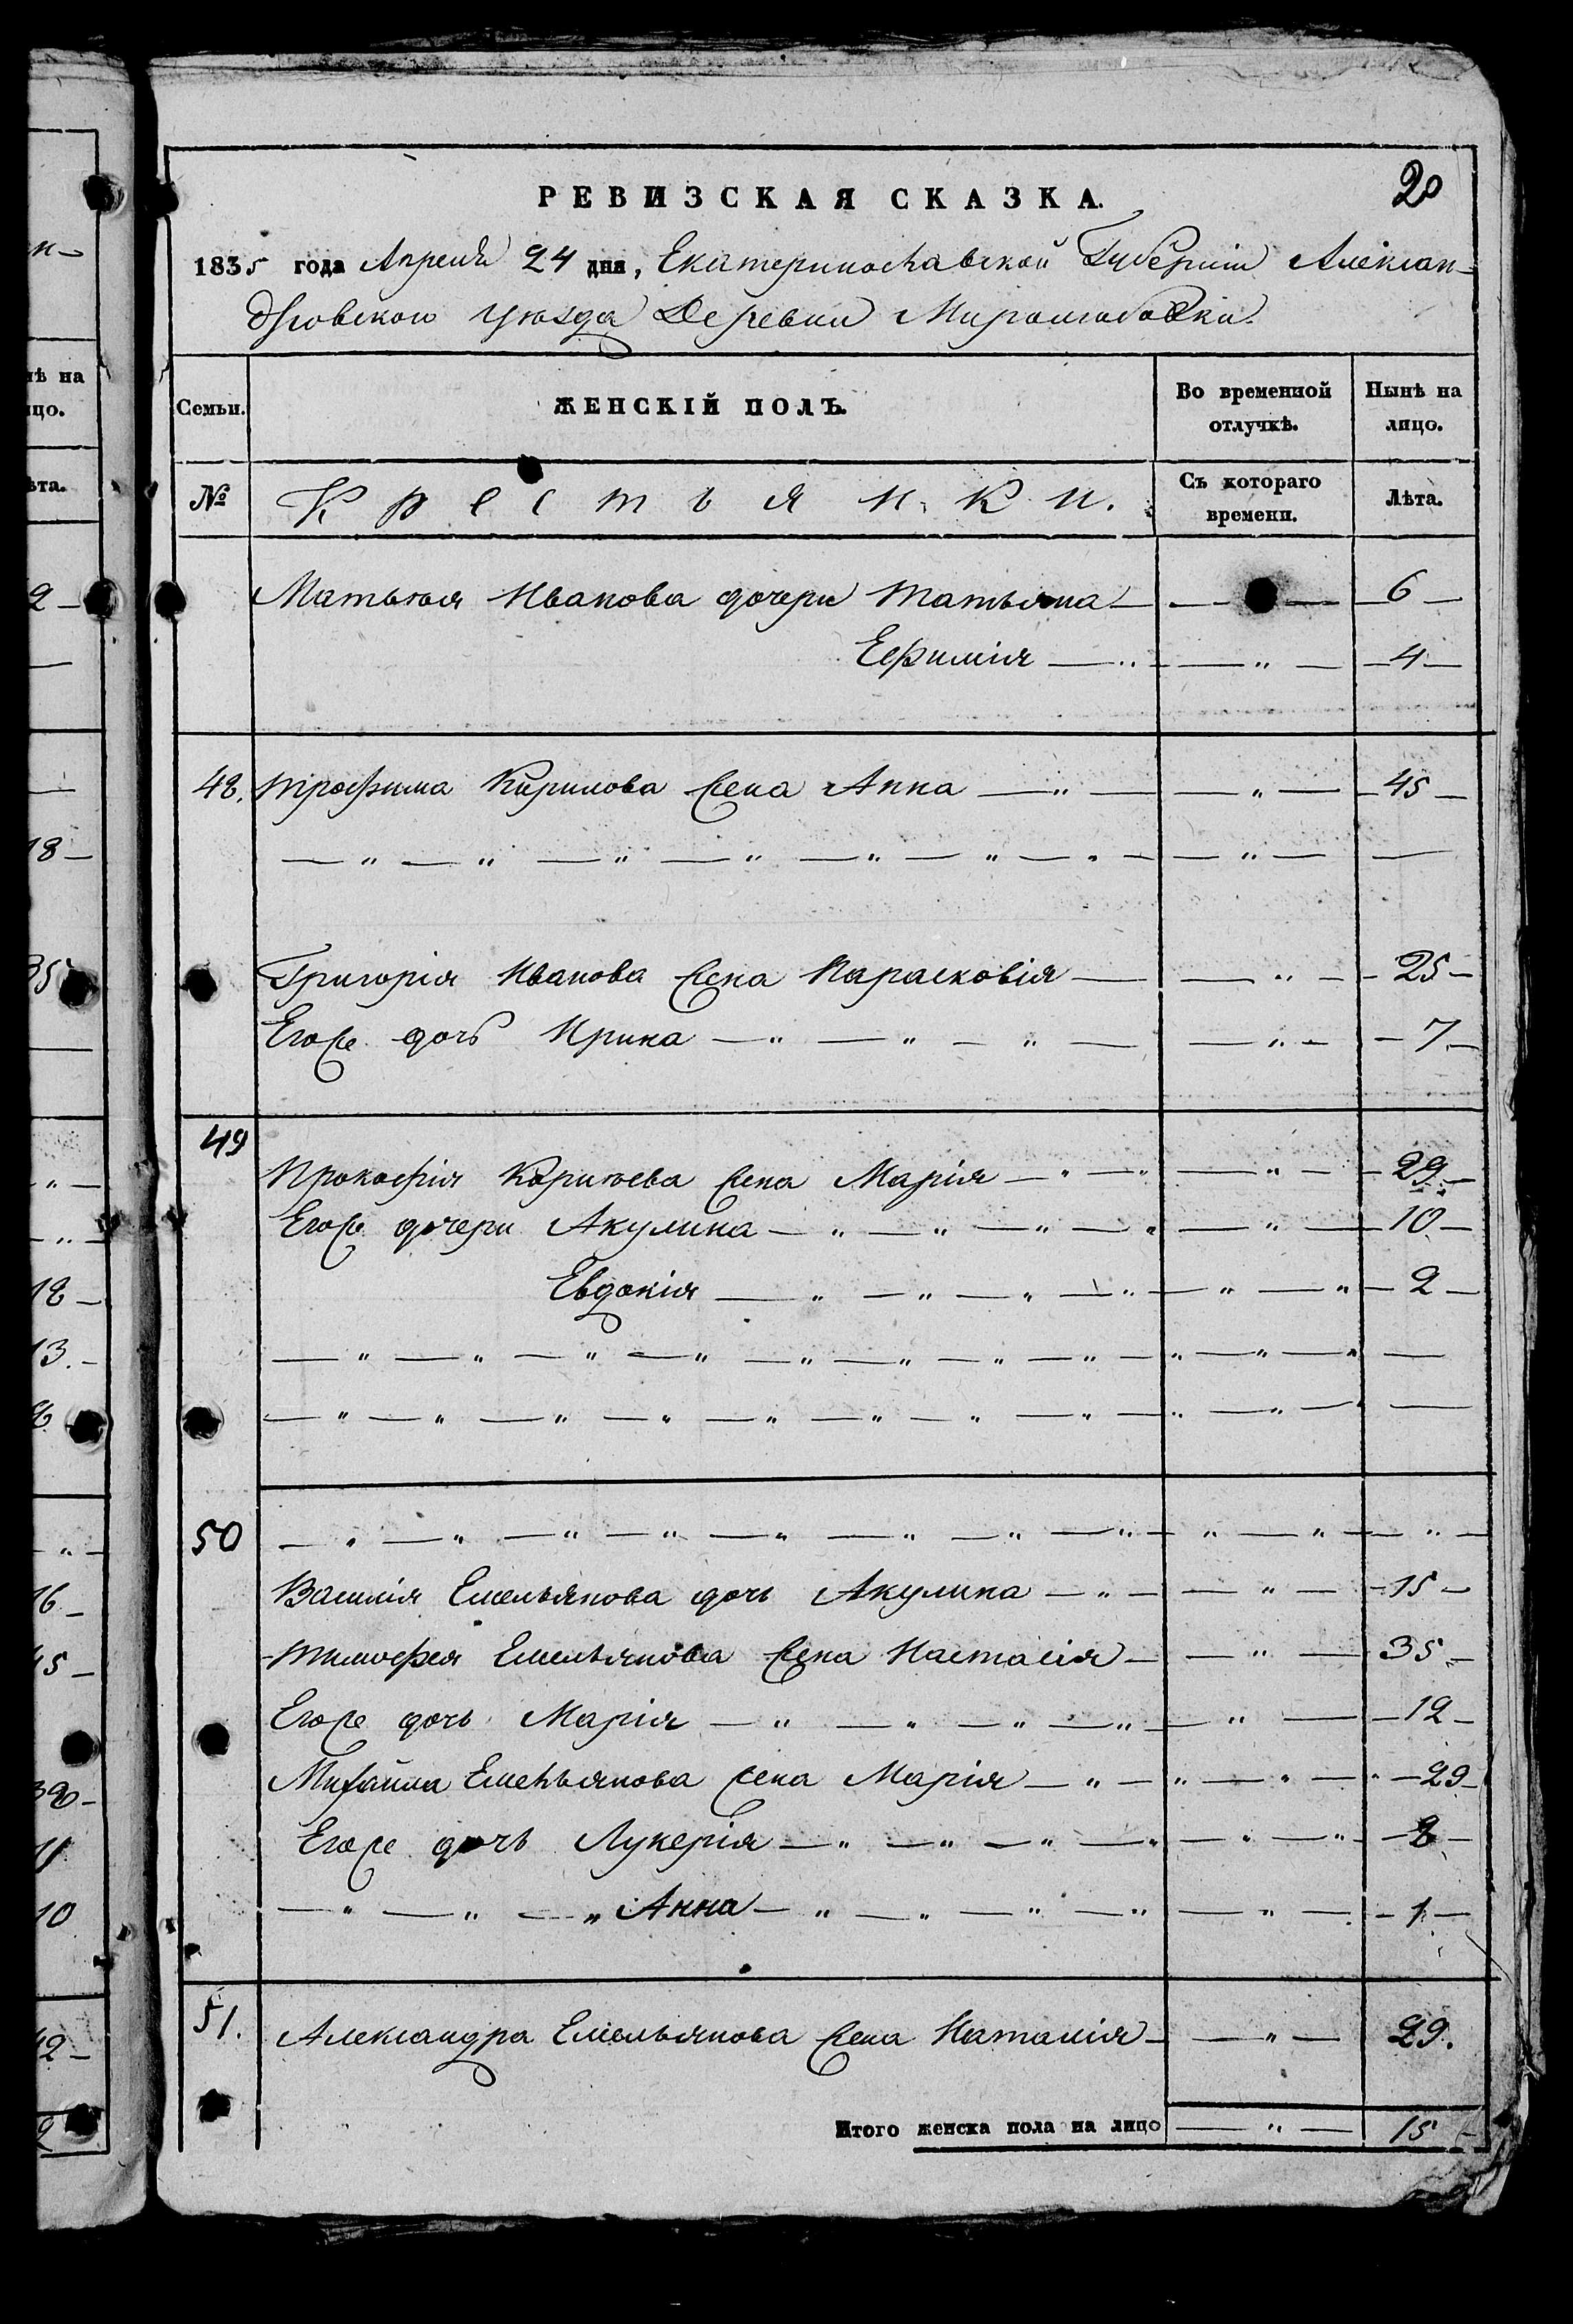 20
РЕВИЗСКАЯ СКАЗКА.
1835 года Апреля 24 дня, Екатеринославской Губерніи Алексан-
дровскою Уезда Деревни
Семьи. ЖЕНСКІЙ ПОЛЪ. Во временной отлучкѣ. Нынѣ на лицо.
№ Крестьянки. Съ котораго времени. Лѣта.
Матвѣя Иванова дочери Татьяна — 6
Ефимія — 4
48. Трофима Кирилова жена Анна — 45
Григорія Иванова жена Парасковія — 25
Егоже дочь Ирина — 7
49
Прокофія жена Марія — 29
Егоже дочери Акулина — 10
Евдокія — 2
50
Василія Емельянова дочь Акулина — 15
Тимофея Емельянова жена Настасія — 35
Егоже дочь Марія — 12
Михайла Емельянова жена Марія — 29
Егоже дочь Лукерія —
Анна — 1
51. Александра Емельянова жена Наталія — 29.
Итого женска пола на лицо — 15